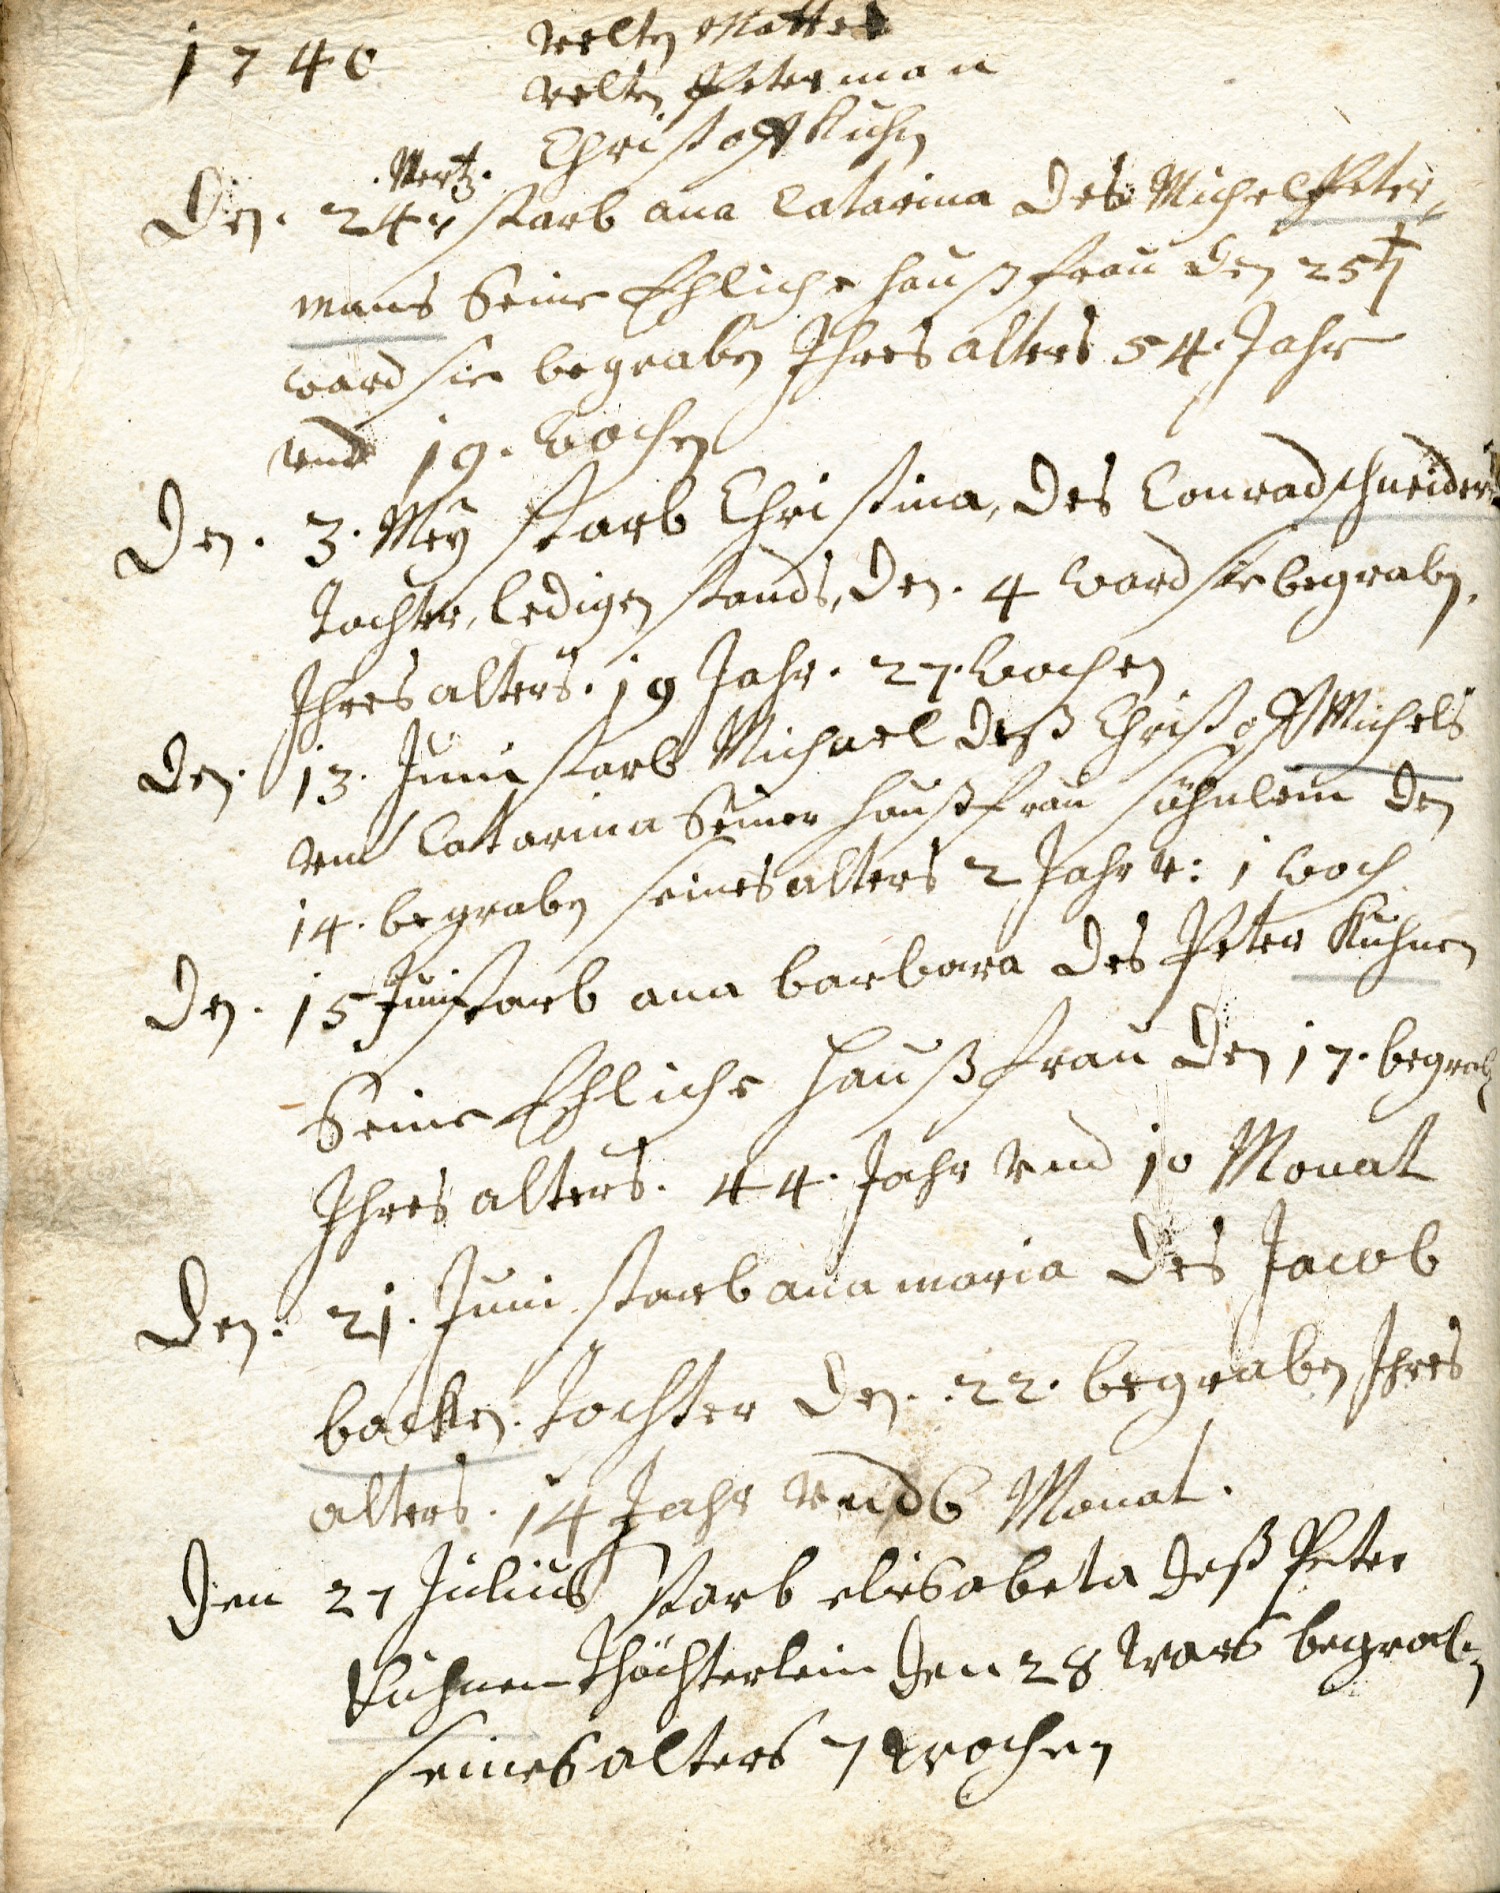 1740
Velten Matter
Velten Peterman
Christoff Kuhn
. Mertz.
Den. 24ⁿ starb ana Catarina des Michel Peter,
mans Seine Ehliche haußfrau den 25ᵗ
ward sie begraben Ihres alters 54. Jahr
und 19. Wochen
Den. 3. Mey starb Christina, des Conrad schneiders
Tochter, ledigen stands, den. 4 ward sie begraben,
Ihres alters. 19 Jahr. 27. Wochen
Den. 13. Juni starb Michael deß Christoff Michels
vnd Catarina Seiner haußfrau söhnlein den
14. begraben seines alters 2 Jahr v: 1 woch
Den. 15 Juni starb ana barbara des Peter Kuhnen
Seine Ehliche haußfrau den 17. begraben
Ihres alters. 44. Jahr vnd 10 Monat
Den. 21. Juni starb ana maria des Jacob
backen. Tochter den. 22. begraben Ihres
alters. 14 Jahr vnd 6 Monat.
Den 27 Julius starb elisabeta deß Peter
Kuhnen Thöchterlein den 28 wars begraben
seines alters 7 wochen